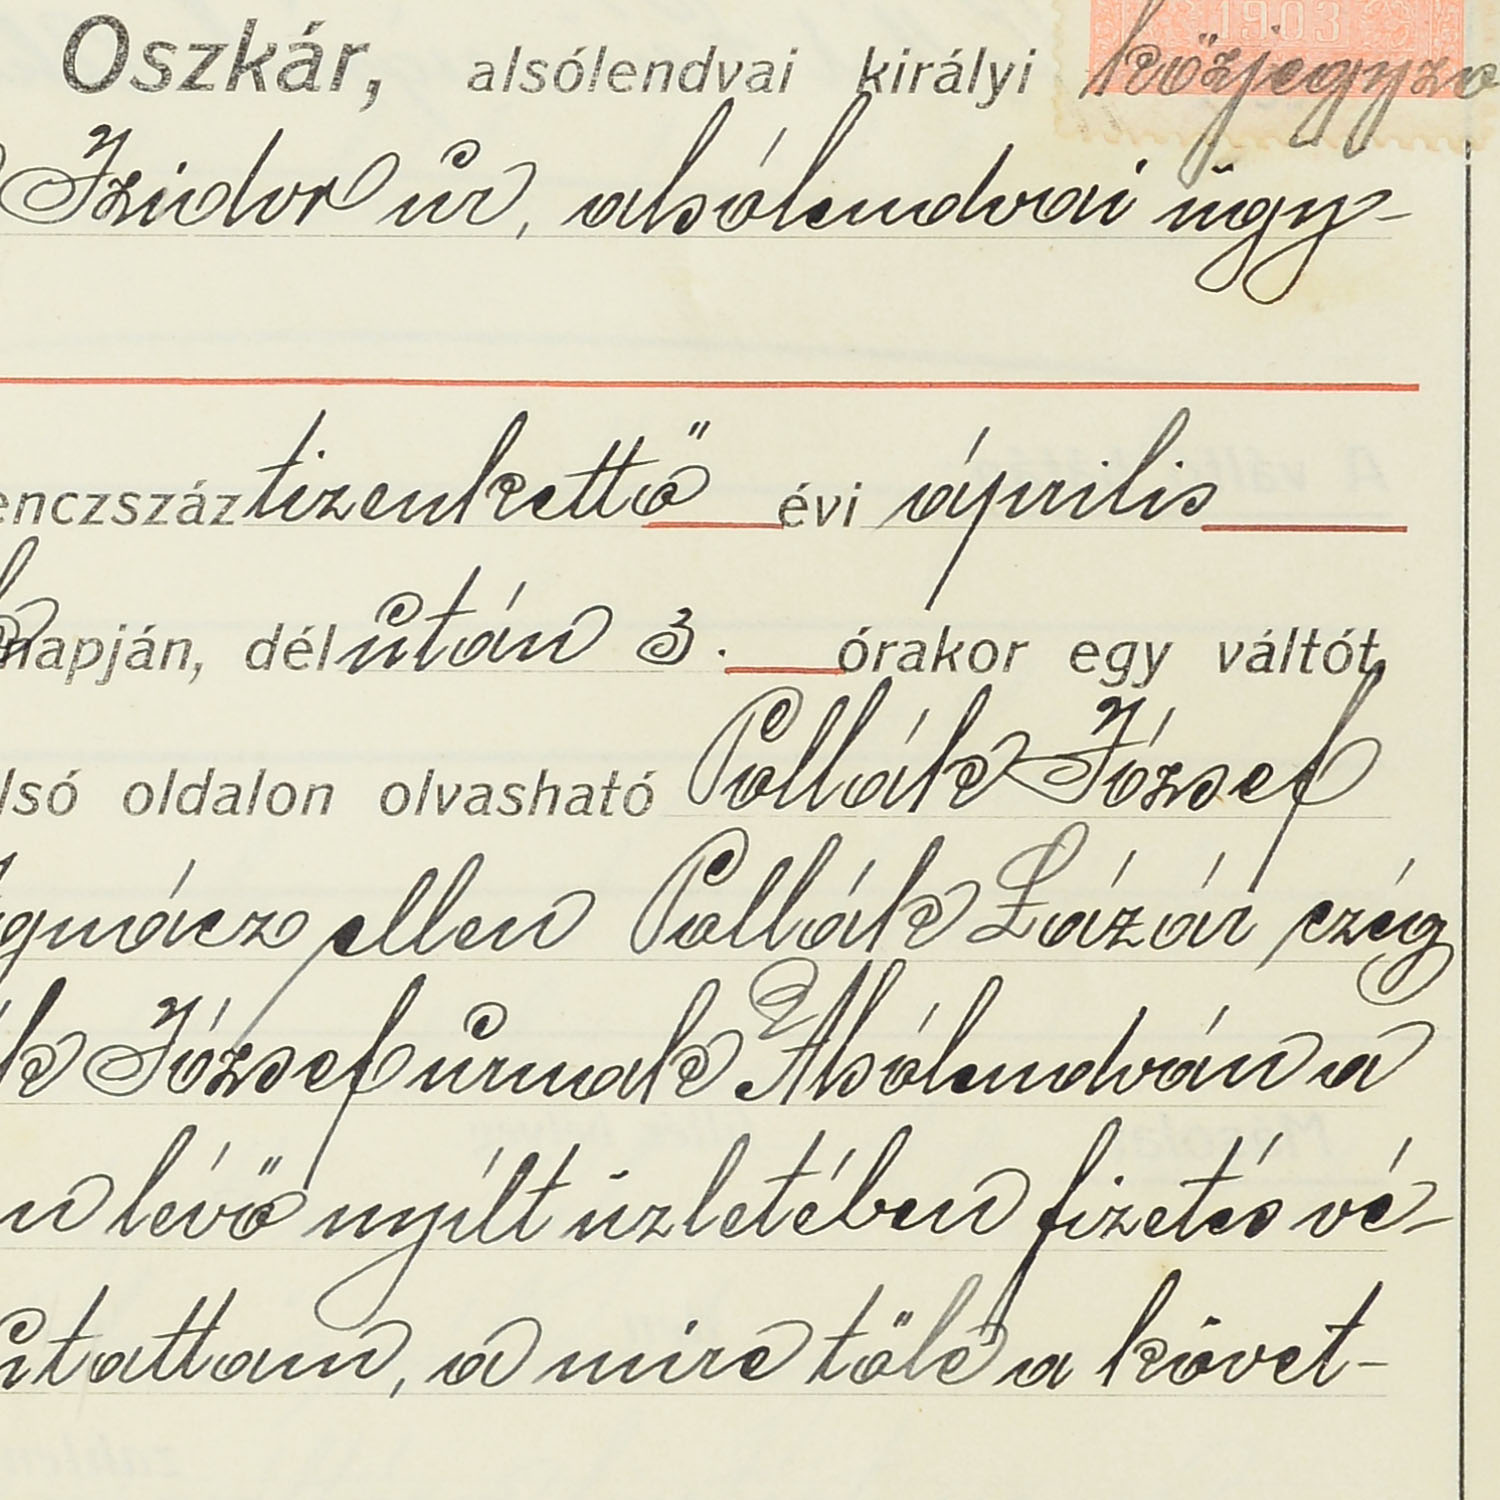 Oszkár, alsólendvai királyi közjegyző
1903
Izidor úr, alsólendvai ügy-
enczszáz tizenkettő évi április
napján, délután 3. órakor egy váltót,
lső oldalon olvasható Pollák József
gnácz ellen Pollák Lázár czég
k József úrnak Alsólendván a
n lévő nyílt üzletében fizetés vé-
utattam, a mire tőle a követ-